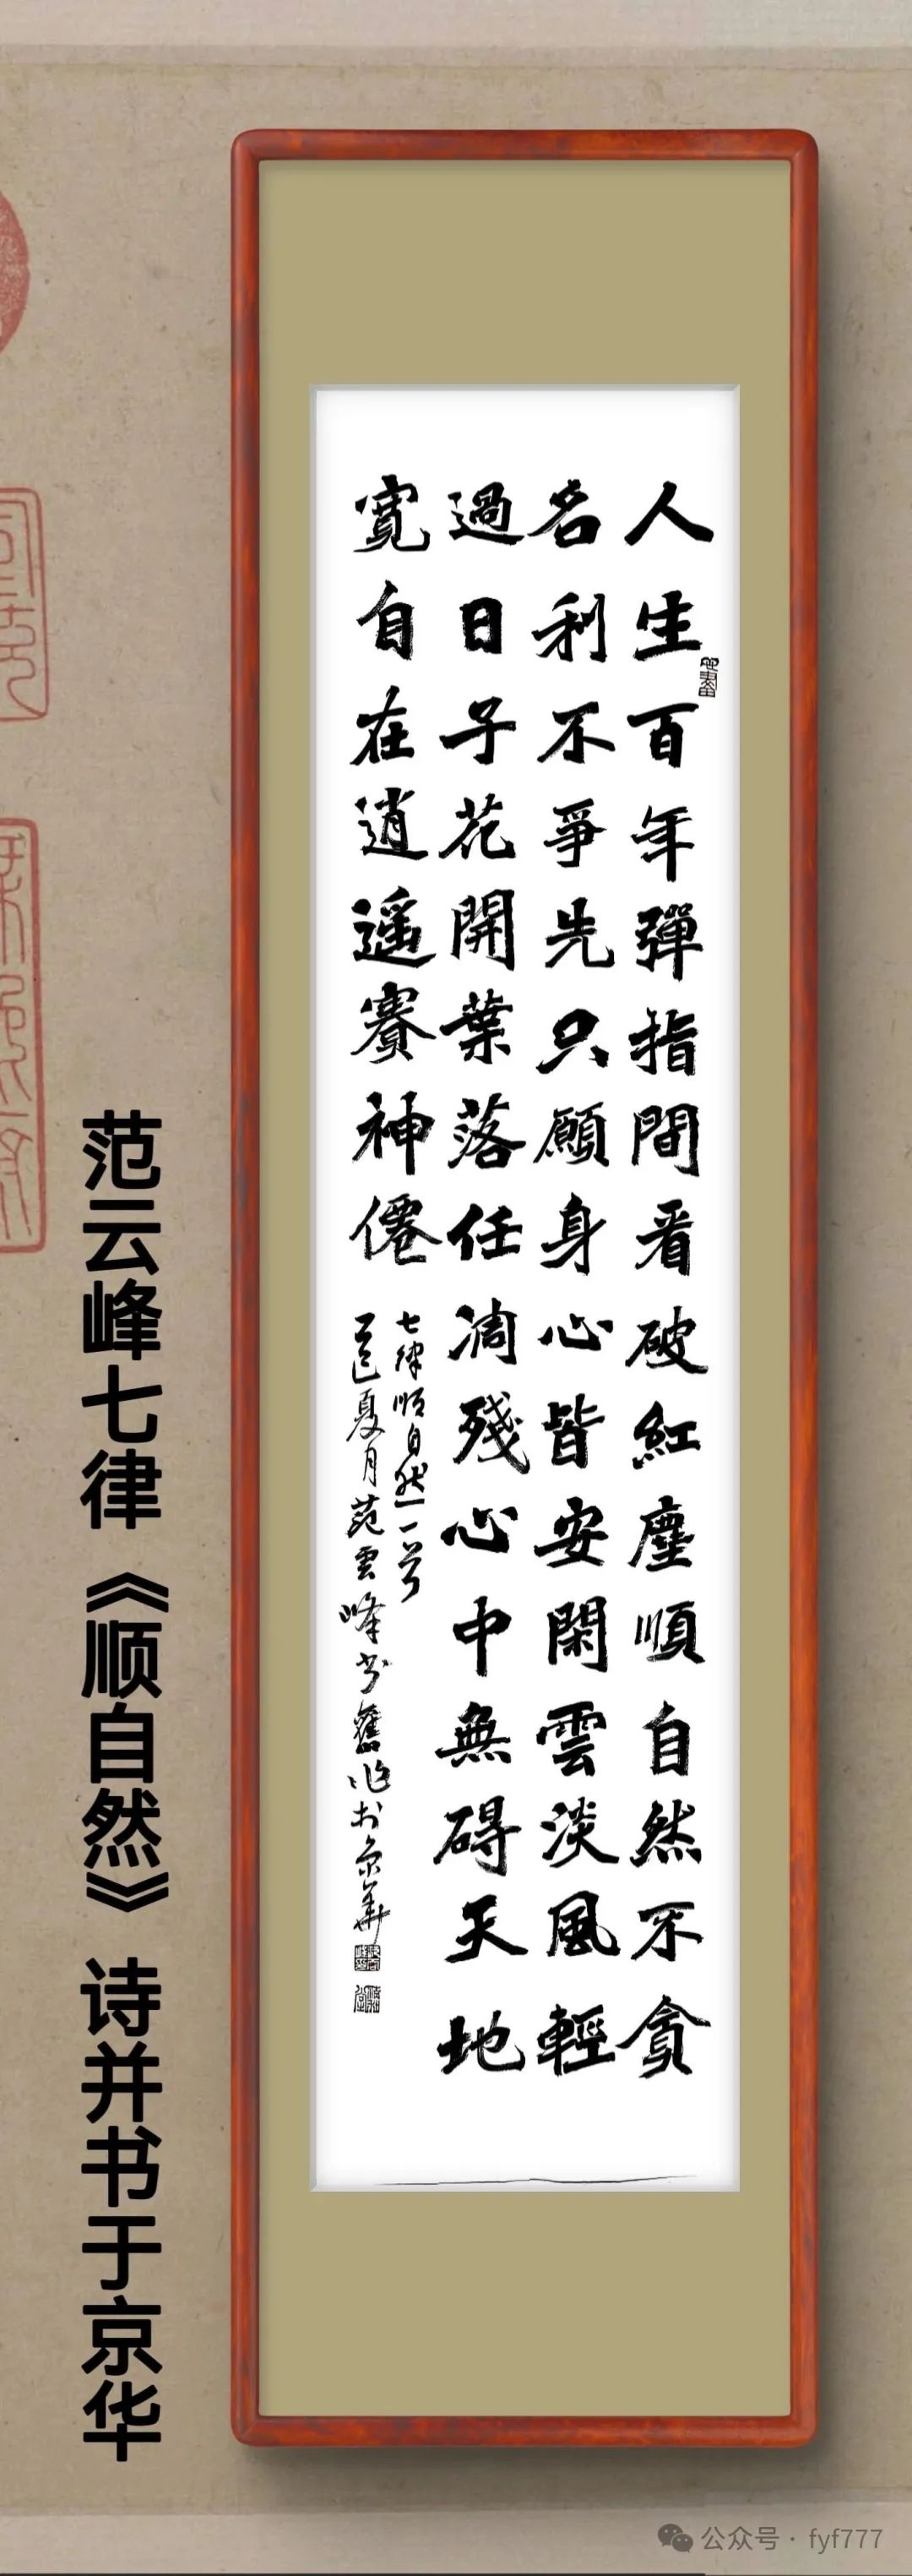 人生百年彈指間看破紅塵順自然不貪
名利不爭先只願身心皆安閑雲淡風輕
過日子花開葉落任凋殘心中無碍天地
寬自在逍遙賽神僊
七律順自然一首
乙巳夏月范雲峰書舊作於京華
范云峰七律《顺自然》诗并书于京华
公众号·fyf777